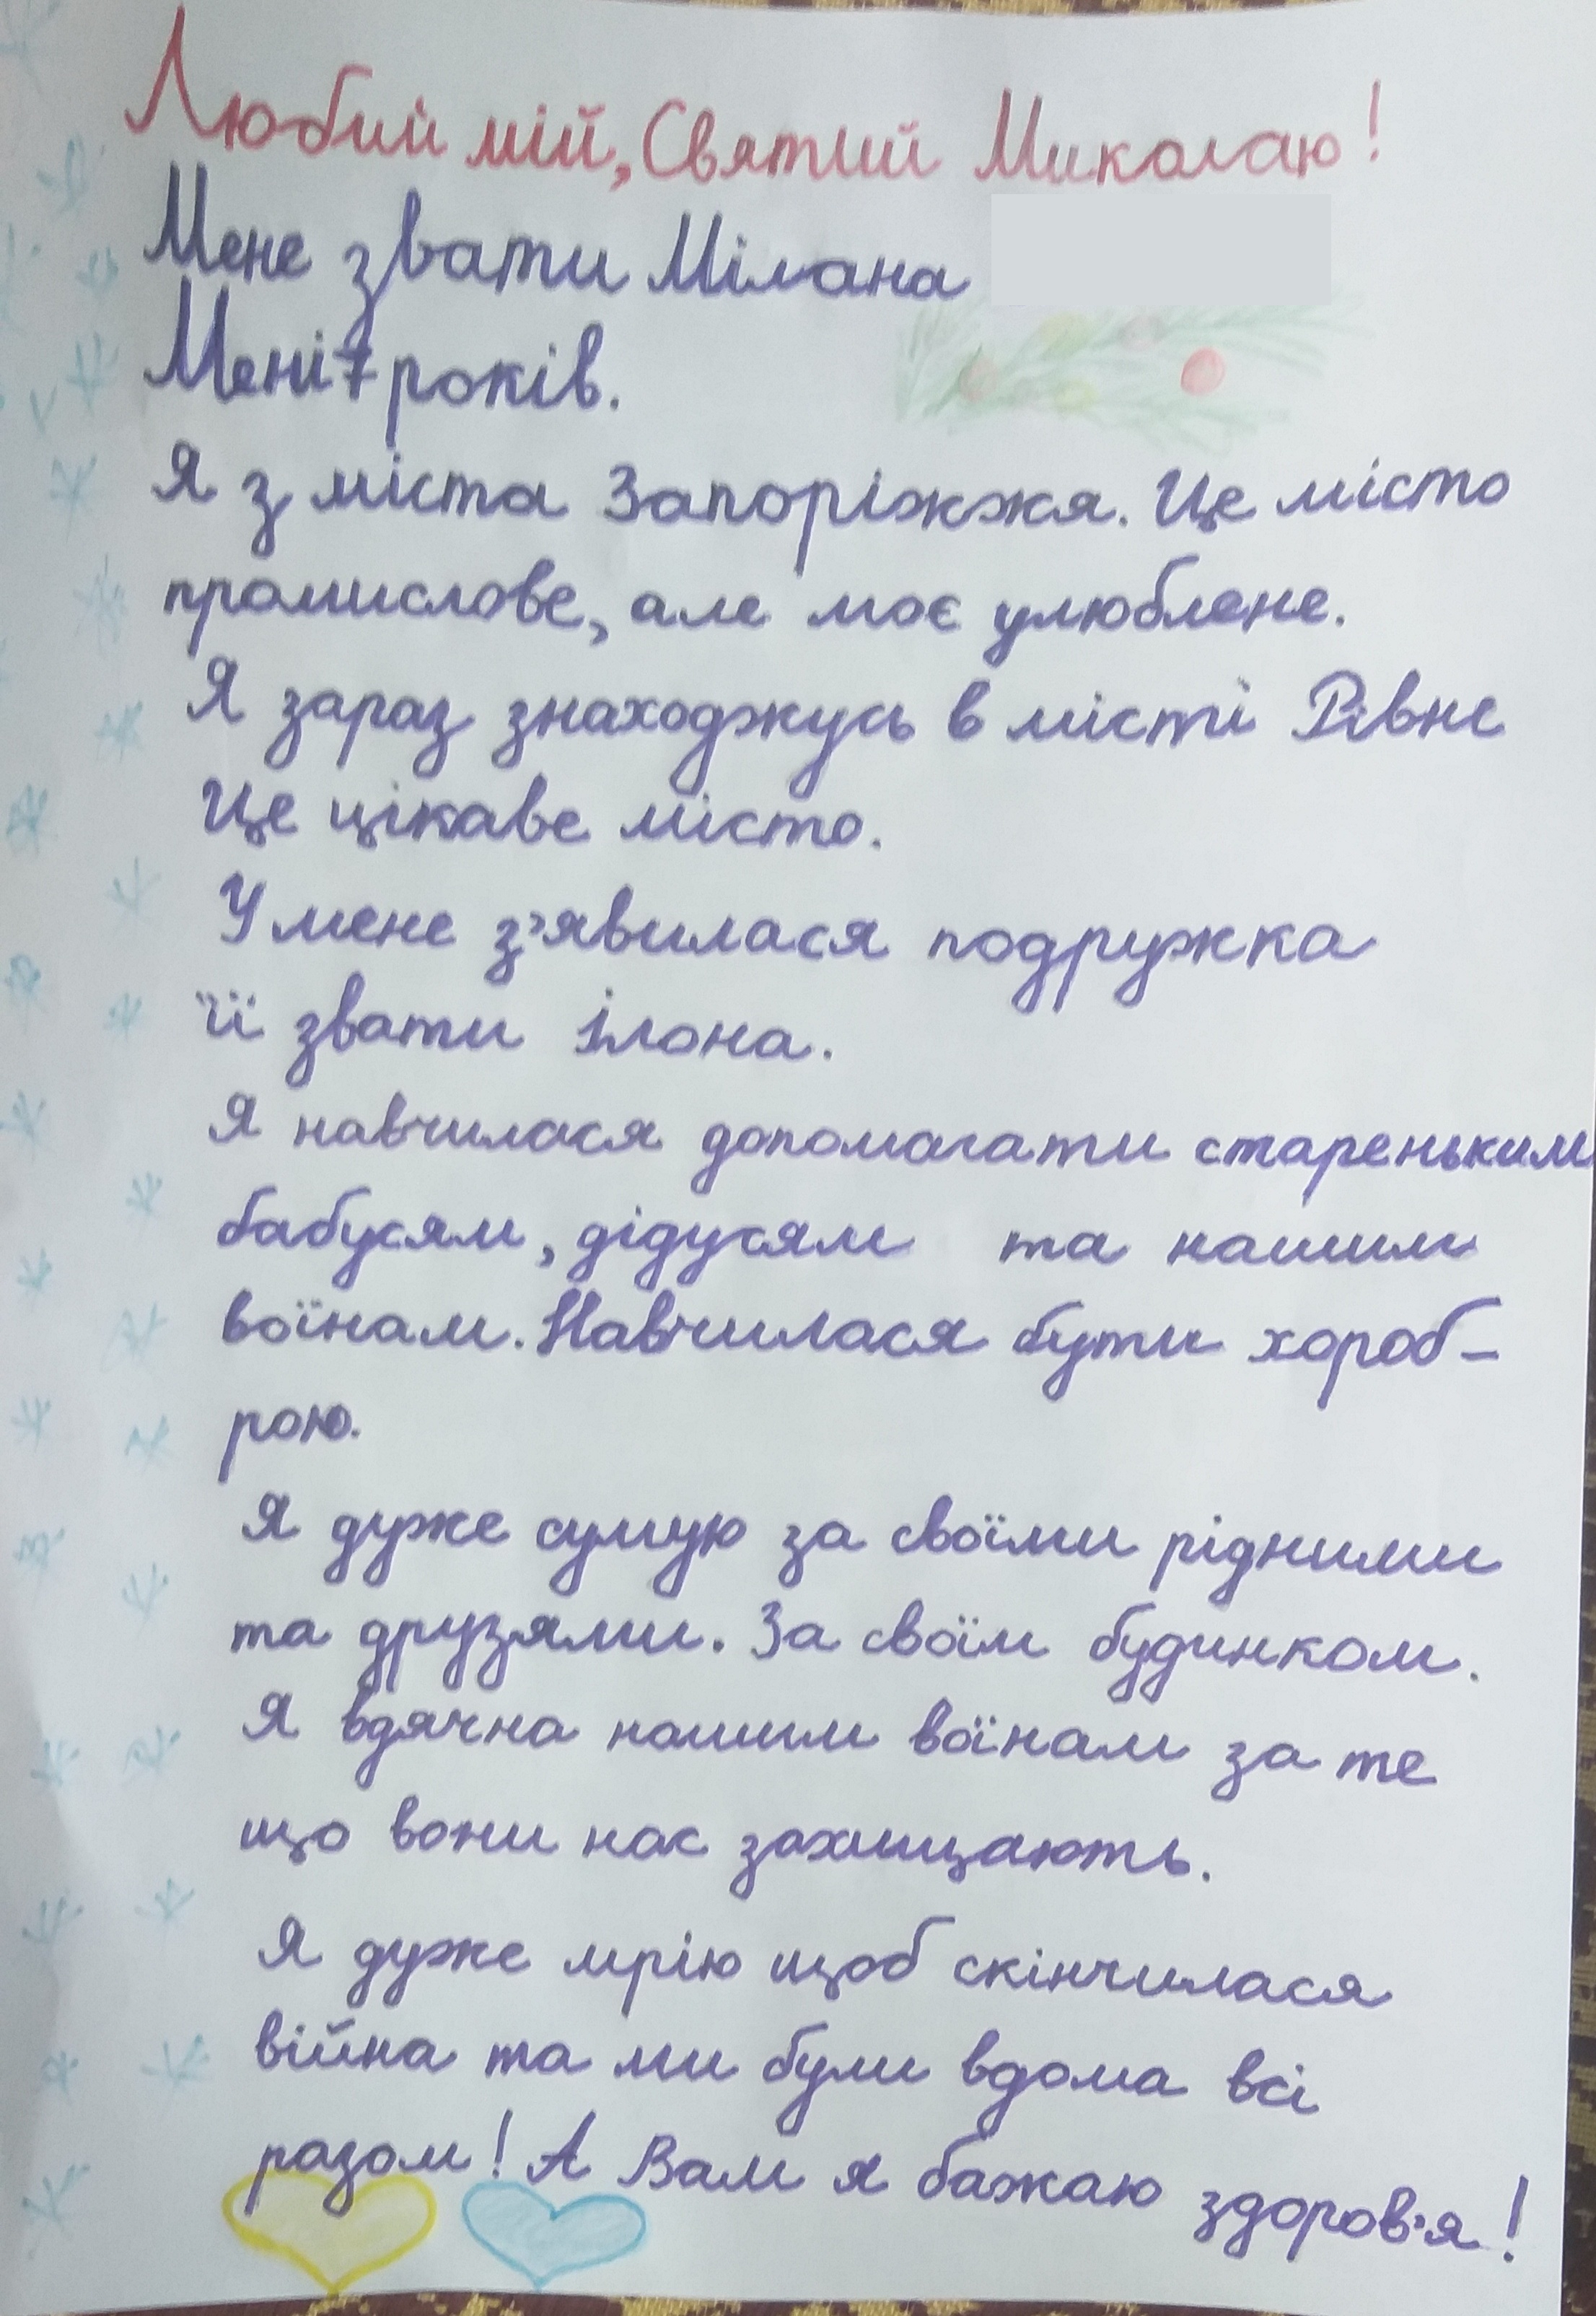 Любий мій, Святий Миколаю!
Мене звати Мілана
Мені 7 років.
Я з міста Запоріжжя. Це місто
промислове, але моє улюблене.
Я зараз знаходжусь в місті Рівне
Це цікаве місто.
У мене з'явилася подружка
її звати Ілона.
Я навчилася допомагати стареньким
бабусям, дідусям та нашим
воїнам. Навчилася бути хороб-
рою.
Я дуже сумую за своїми рідними
та друзями. За своїм будинком.
Я вдячна нашим воїнам за те
що вони нас захищають.
Я дуже мрію щоб скінчилася
війна та ми були вдома всі
разом! А Вам я бажаю здоров'я!